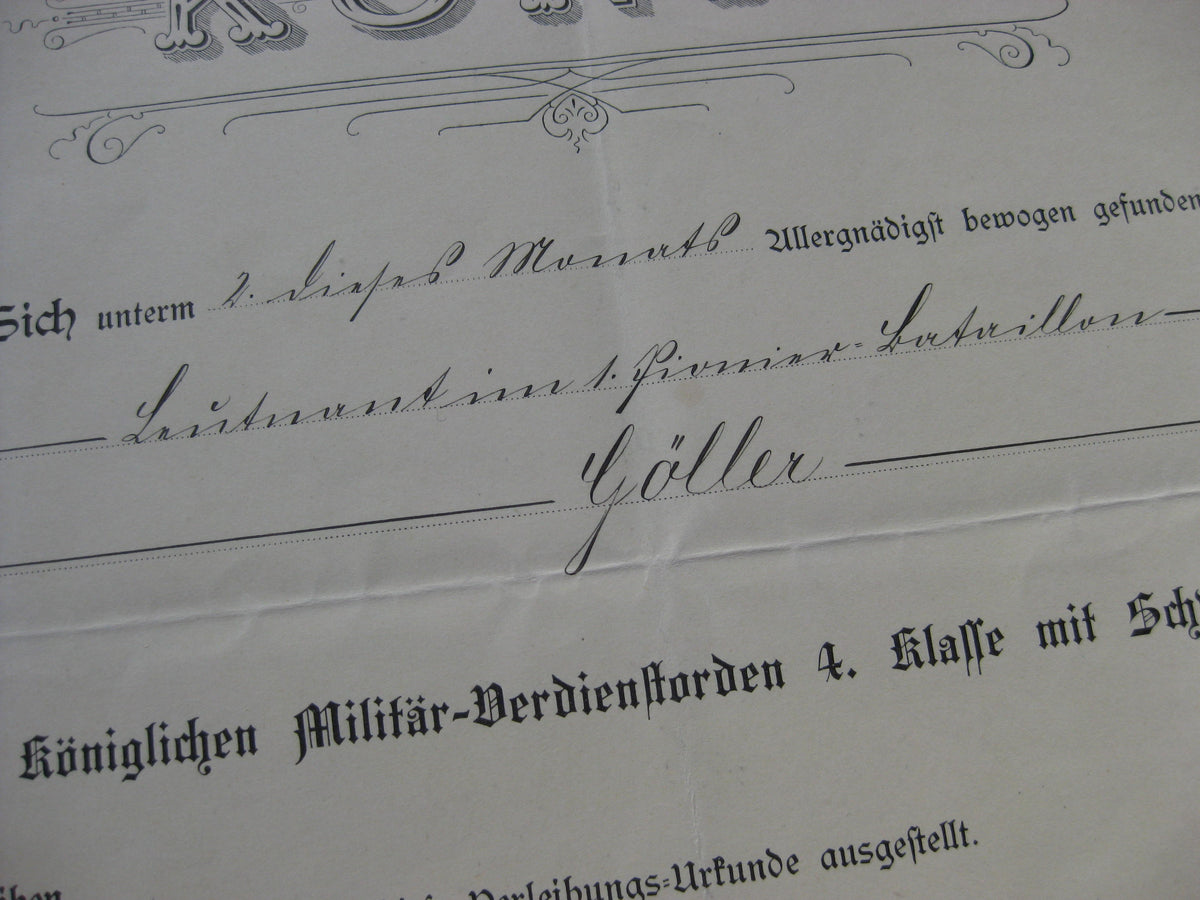 Sich unterm 2. dieses Monats Allergnädigst bewogen gefunden
Leutnant im 1. Pionier-Bataillon
Göller
Königlichen Militär-Verdienstorden 4. Klasse mit
Verleihungs-Urkunde ausgestellt.